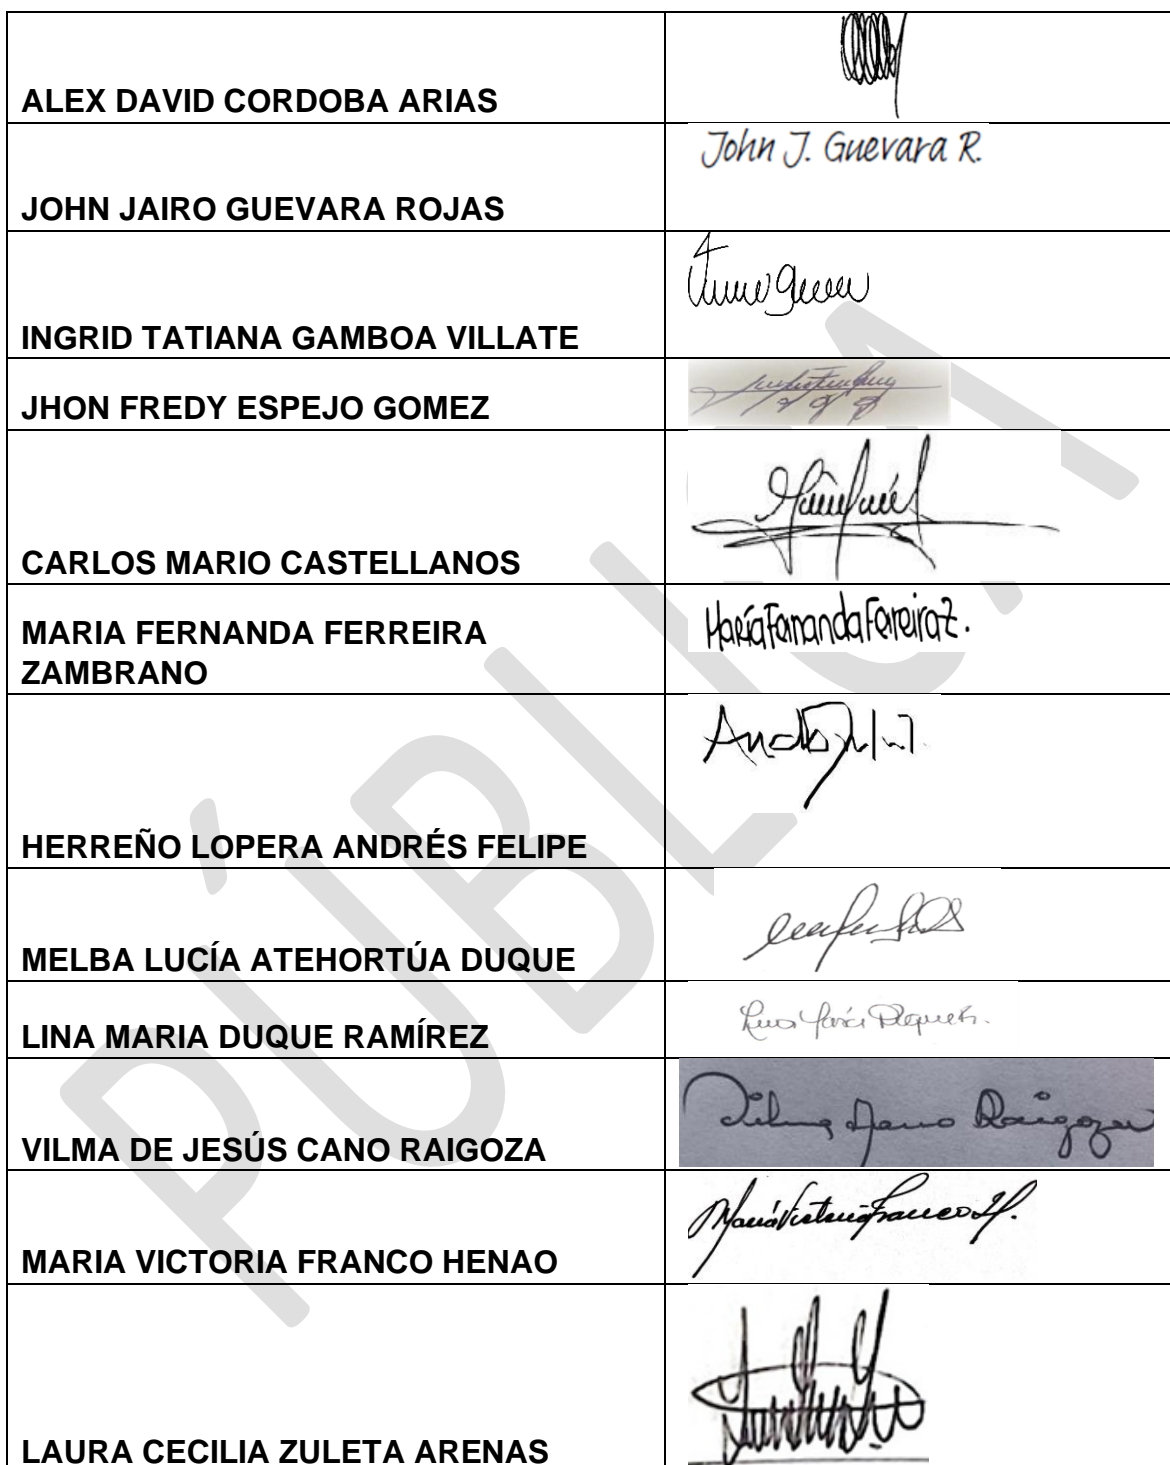 ALEX DAVID CORDOBA ARIAS
John J. Guevara R.
JOHN JAIRO GUEVARA ROJAS
INGRID TATIANA GAMBOA VILLATE
JHON FREDY ESPEJO GOMEZ
CARLOS MARIO CASTELLANOS
MARIA FERNANDA FERREIRA
ZAMBRANO
María Fernanda Ferreira Z.
HERREÑO LOPERA ANDRÉS FELIPE
MELBA LUCÍA ATEHORTÚA DUQUE
LINA MARIA DUQUE RAMÍREZ
VILMA DE JESÚS CANO RAIGOZA
Vilma Cano Raigoza
MARIA VICTORIA FRANCO HENAO
María Victoria Franco H.
LAURA CECILIA ZULETA ARENAS
PÚBLICA